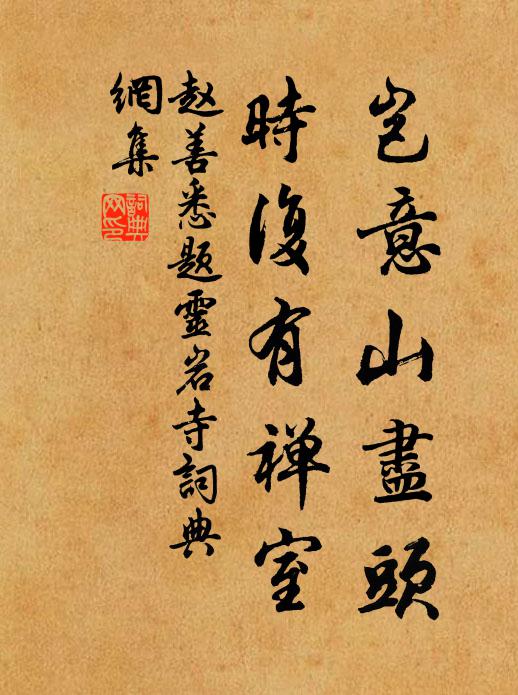 岂意山盡頭
時復有禅室
赵善悉题靈岩寺詞典
網集
詞典
网印